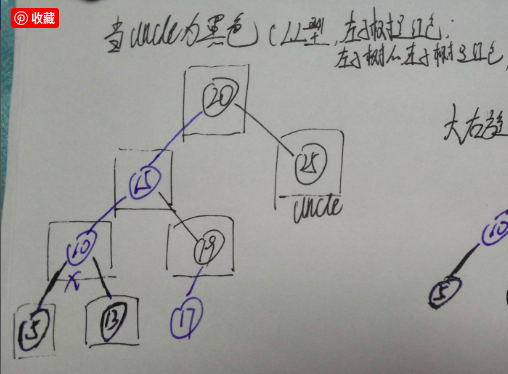 收藏
当uncle为黑色（LL型，左子树是红色；
左子树左子树是红色，
大右旋
20
15
25
uncle
10
19
10
x
5
13
17
5